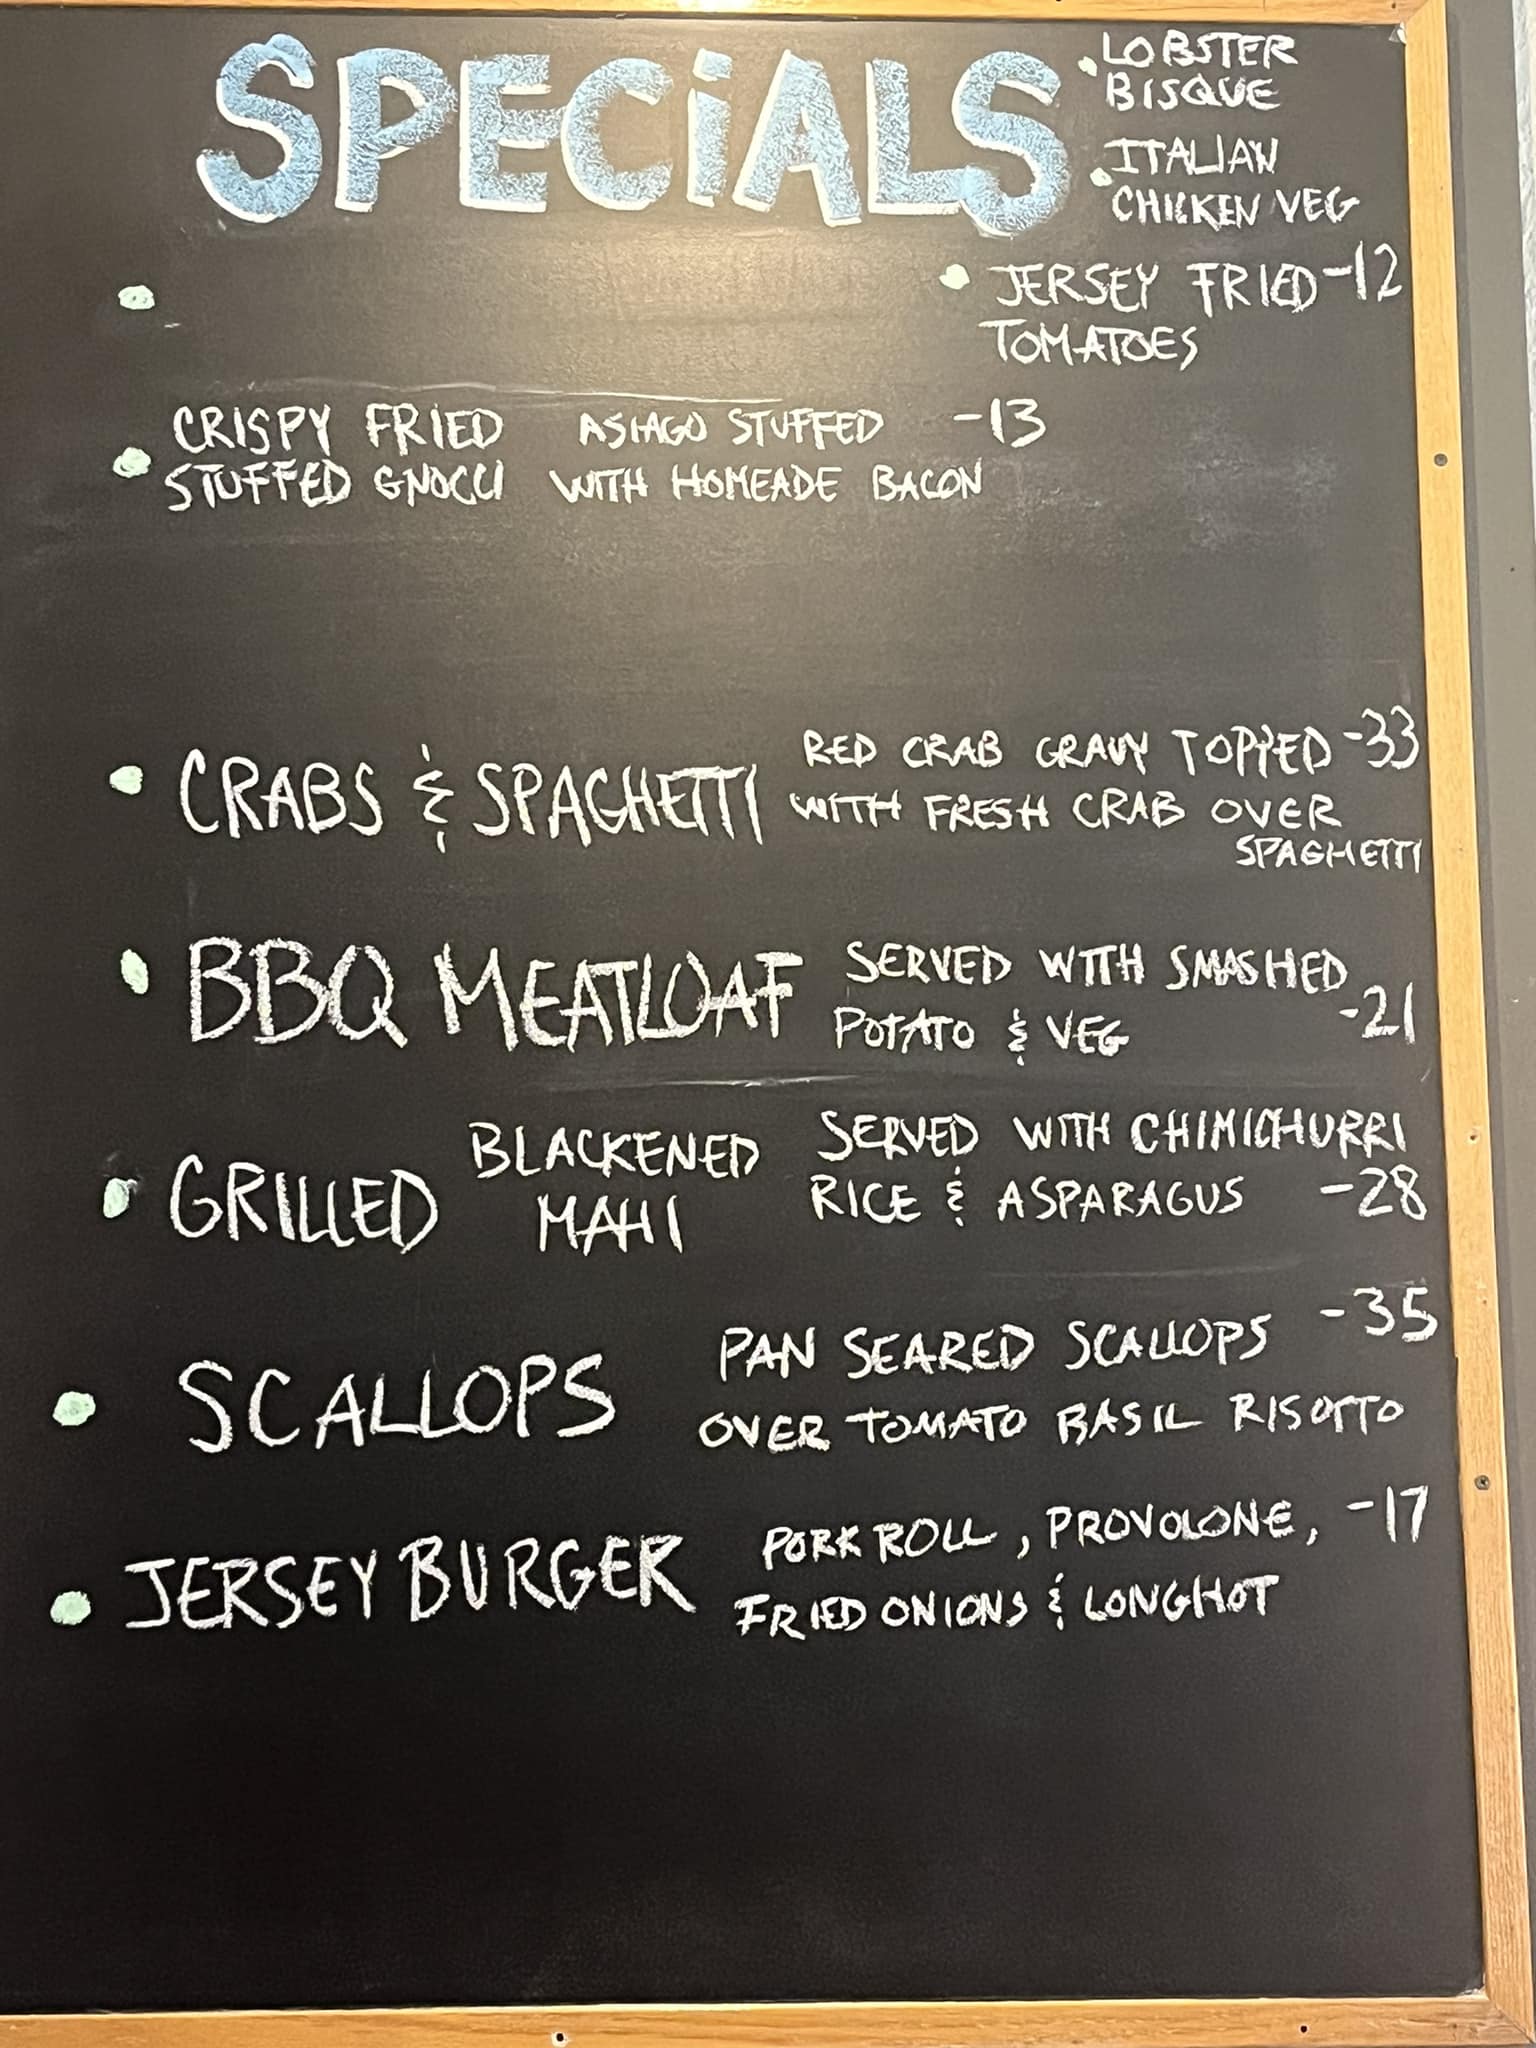 SPECiALS
LOBSTER
BISQUE
ITALIAN
CHICKEN VEG
JERSEY FRIED -12
TOMATOES
CRISPY FRIED ASIAGO STUFFED -13
STUFFED GNOCCI WITH HOMEADE BACON
CRABS & SPAGHETTI
RED CRAB GRAVY TOPPED -33
WITH FRESH CRAB OVER
SPAGHETTI
BBQ MEATLOAF
SERVED WITH SMASHED
POTATO & VEG -21
GRILLED BLACKENED
MAHI
SERVED WITH CHIMICHURRI
RICE & ASPARAGUS -28
SCALLOPS
PAN SEARED SCALLOPS -35
OVER TOMATO BASIL RISOTTO
JERSEY BURGER
PORK ROLL, PROVOLONE, -17
FRIED ONIONS & LONGHOT